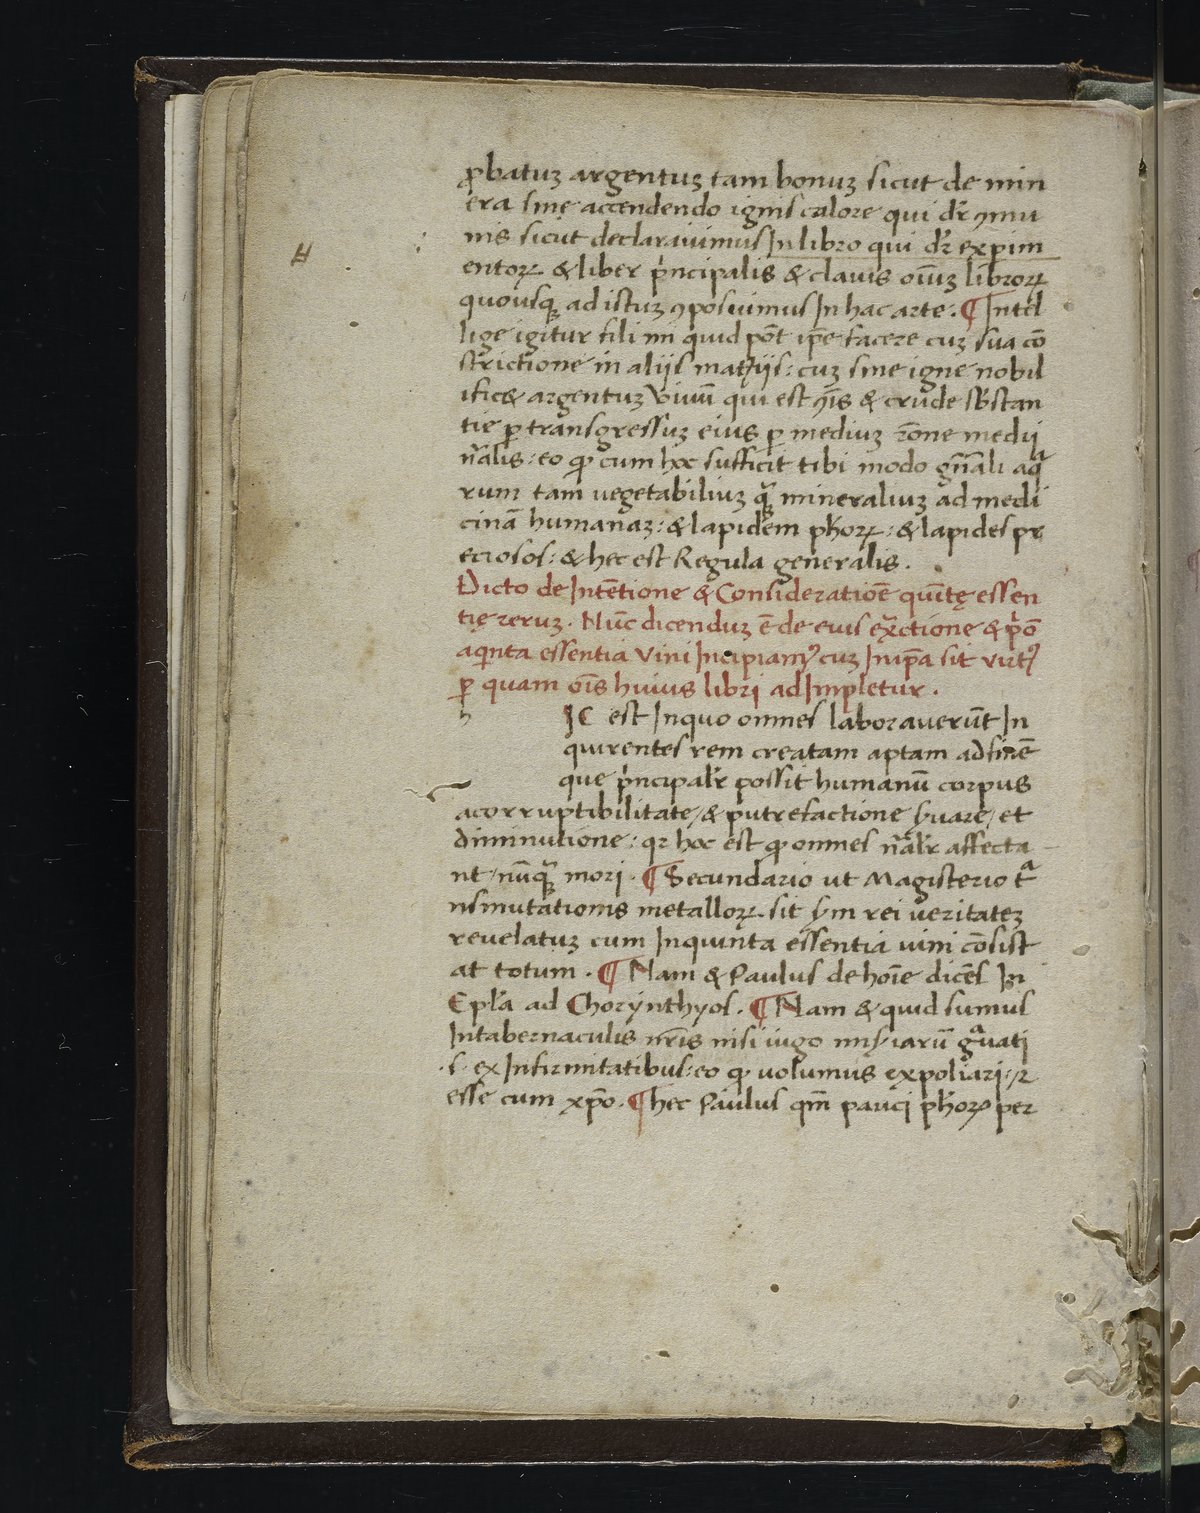 ꝓbatuꝫ argentuꝫ tam bonuꝫ sicut de min
era sine accendendo ignis calore qui dr̃ ꝯmu
nis sicut declarauimus In libro qui dr̃ expim
entoꝝ & liber p̃ncipalis & clauis oĩuꝫ libroꝝ
quousqꝫ ad istuꝫ ꝯposuimus In hac arte. ¶ Intel
lige igitur fili mi quid põt ip̃e facere cuꝫ sua cõ
strictione in aliis mat̃iis: cuꝫ sine igne nobil
ific& argentuꝫ viuũ qui est gr̃is & crude sb̃stan
tie ꝑ transgressuꝫ eius ꝑ mediuꝫ rõne medij
nr̃alis: eo ꝙ cum hoc sufficit tibi modo gñali aq̃
rum tam uegetabiliuꝫ qꝫ̃ mineraliuꝫ ad medi
cinã humanaꝫ: & lapidem ph̃oꝝ: & lapides pr
eciosos: & hec est Regula generalis.
Dicto de Intẽtione & Consideratiõe quĩtę essen
tię reruꝫ. Nũc dicenduꝫ ẽ de eius ex̃ctione & p̃õ
aqinta essentia vini Incipiamꝰ cuꝫ In ip̃a sit virtꝰ
ꝑ quam oĩs huius libri adImpletur.
h IC est Inquo omnes laborauerũt In
quirentes rem creatam aptam ad finẽ
que p̃ncipalr̃ possit humanũ corpus
acorruptibilitate / & putrefactione s̃uare / et
diminutione: qꝛ hoc est ꝙ omnes nãlr̃ affecta
nt / nũqꝫ̃ mori. ¶ Secundario ut Magisterio t̃
nsmutationis metalloꝝ sit s̃m rei ueritateꝫ
reuelatuꝫ cum Inquinta essentia uini cõsist
at totum. ¶ Nam & Paulus de hoĩe dicẽs In
Epl̃a ad Chorynthyos. ¶ Nam & quid sumus
Intabernaculis nr̃is nisi iugo mis̃iarũ g̃uati
.s. ex Infirmitatibus: eo ꝙ uolumus expoliari: ⁊
esse cum xp̃o. ¶ hec Paulus qm̃ pauci ph̃oꝝ per